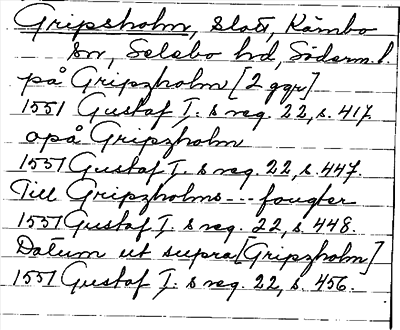 Gripsholm, slott, Kärnbo
sn, Selebo hd, Söderm. l.
på Gripzholm [2 ggr]
1551 Gustaf I:s reg. 22, s. 417.
opå Gripzholm
1551 Gustaf I:s reg. 22, s. 447.
Till Gripzholms --- fougter
1551 Gustaf I:s reg. 22, s. 448.
Datum ut supra [Gripzholm]
1551 Gustaf I:s reg. 22, s. 456.